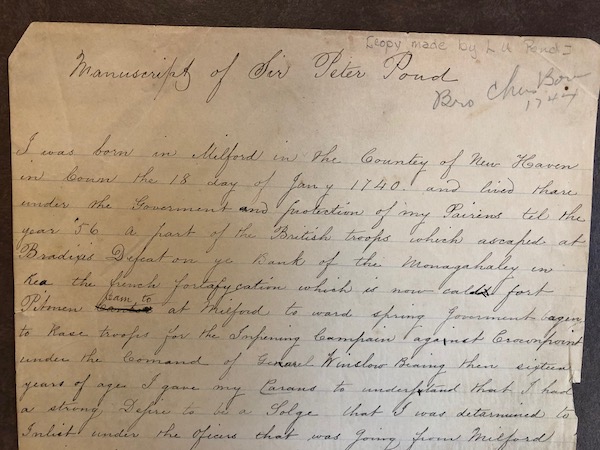 [Copy made by L A Pond]
Manuscript of Sir Peter Pond
Bro Chas Bow
1744
I was born in Milford in the Countey of New Haven
in Conn the 18 day of Jany 1740. and lived thare
under the Goverment and protection of my Pairens til the
year 56 A part of the British troops which ascaped at
Bradixis Defeat on ye Bank of the Monagahaley in
Rea the french fortafycation which is now calld fort
Pitmen cam to at Milford to ward spring Goverment
to Rase troops for the Insuening Campain against Crownpoint
under the Comand of Genarel Winslow Biaing then sixteen
years of age I gave my Parans to understand that I had
a strong Desire to be a Solge that I was detarmined to
Inlist under the Oficers that was Going from Milford